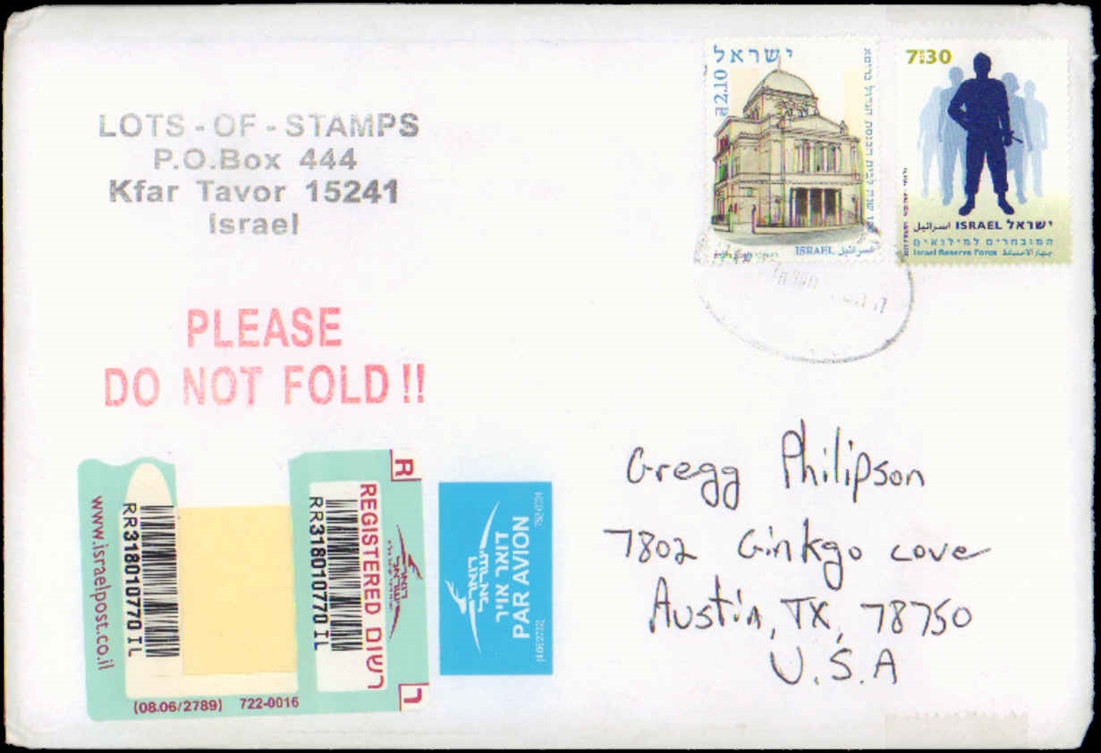 LOTS-OF-STAMPS
P.O.Box 444
Kfar Tavor 15241
Israel
PLEASE
DO NOT FOLD!!
ישראל
₪2.10
ISRAEL اسرائيل
7.30
ישראל ISRAEL اسرائيل
המובחרים למילואים
Israel Reserve Force جهاز الاحتياط
Gregg Philipson
7802 Ginkgo cove
Austin, TX, 78750
U.S.A
www.israelpost.co.il
RR318010770 IL
RR318010770 IL
REGISTERED רשום
R
ר
(08.06/2789) 722-0016
דואר ישראל
דואר אויר
PAR AVION